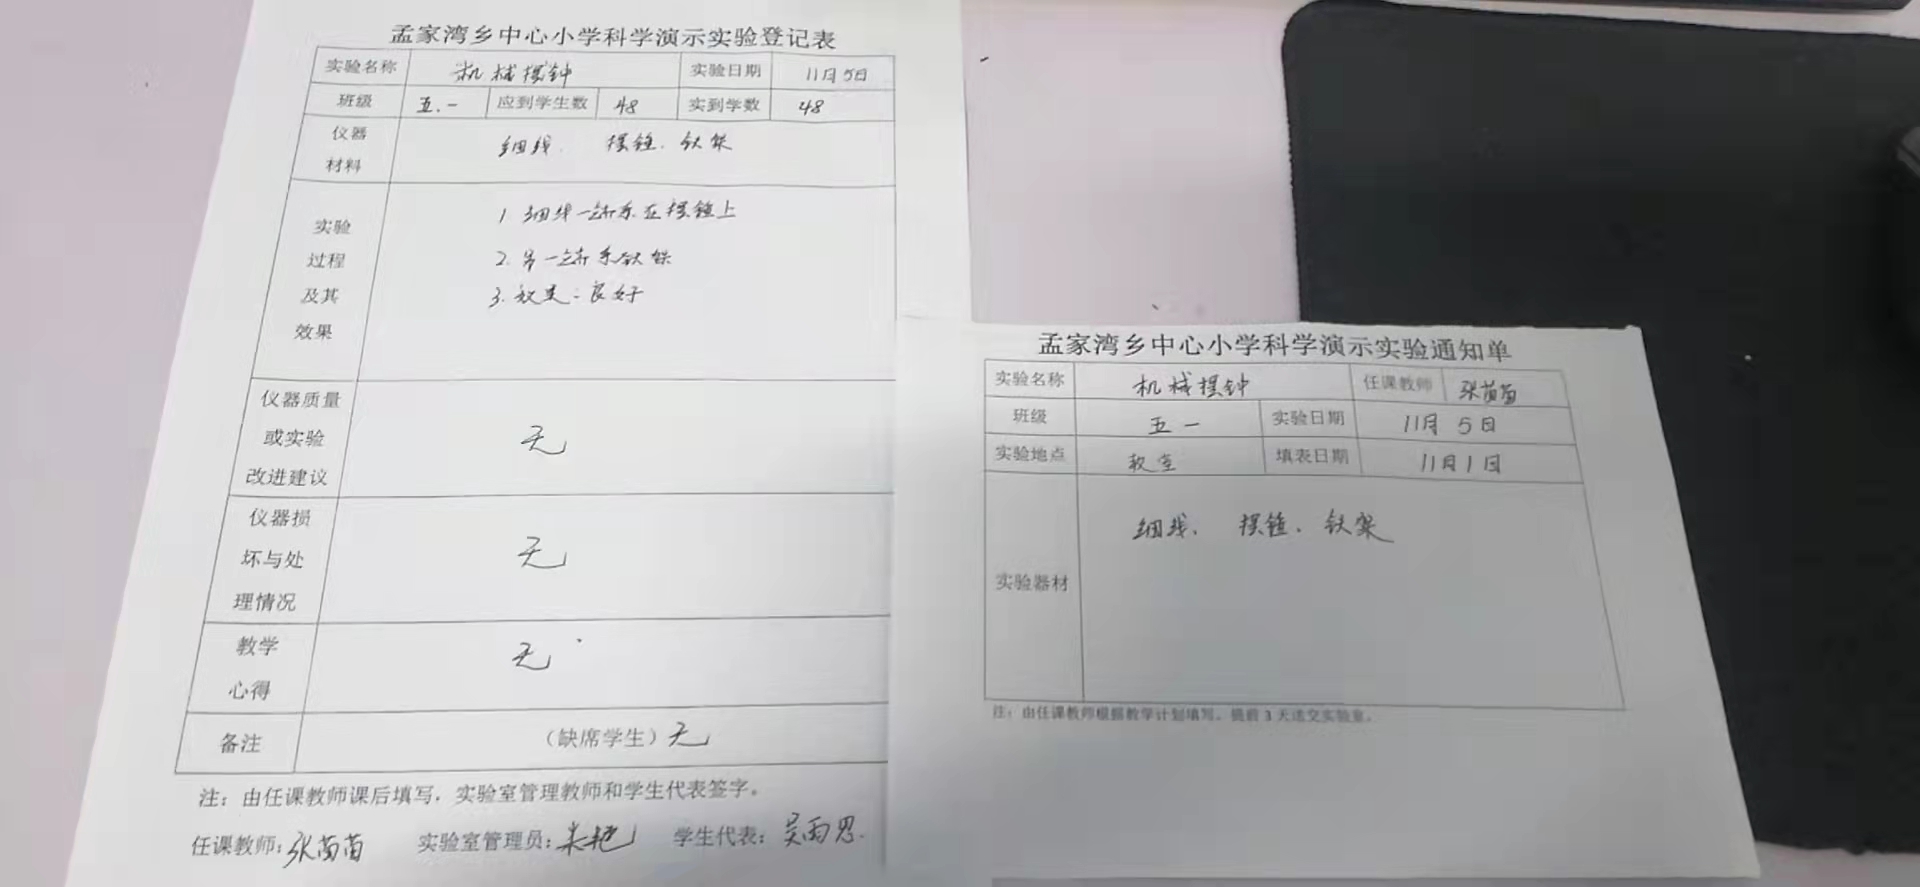 孟家湾乡中心小学科学演示实验登记表
实验名称 机械摆钟 实验日期 11月5日
班级 五.一 应到学生数 48 实到学数 48
仪器
材料
细线. 摆锤. 铁架
实验
过程
及其
效果
1 细线一端系在摆锤上
2. 另一端系铁架
3. 效果：良好
仪器质量
或实验
改进建议
无
仪器损
坏与处
理情况
无
教学
心得
无
备注 （缺席学生）无
注：由任课教师课后填写，实验室管理教师和学生代表签字。
任课教师：张苗苗 实验室管理员： 学生代表：吴雨思.
孟家湾乡中心小学科学演示实验通知单
实验名称 机械摆钟 任课教师 张苗苗
班级 五一 实验日期 11月5日
实验地点 教室 填表日期 11月1日
实验器材 细线. 摆锤. 铁架
注：由任课教师根据教学计划填写，提前3天送交实验室。